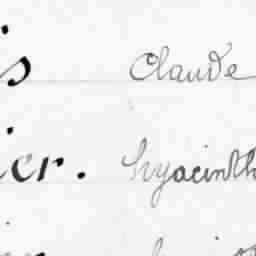 is Claude
ier. hyacinth